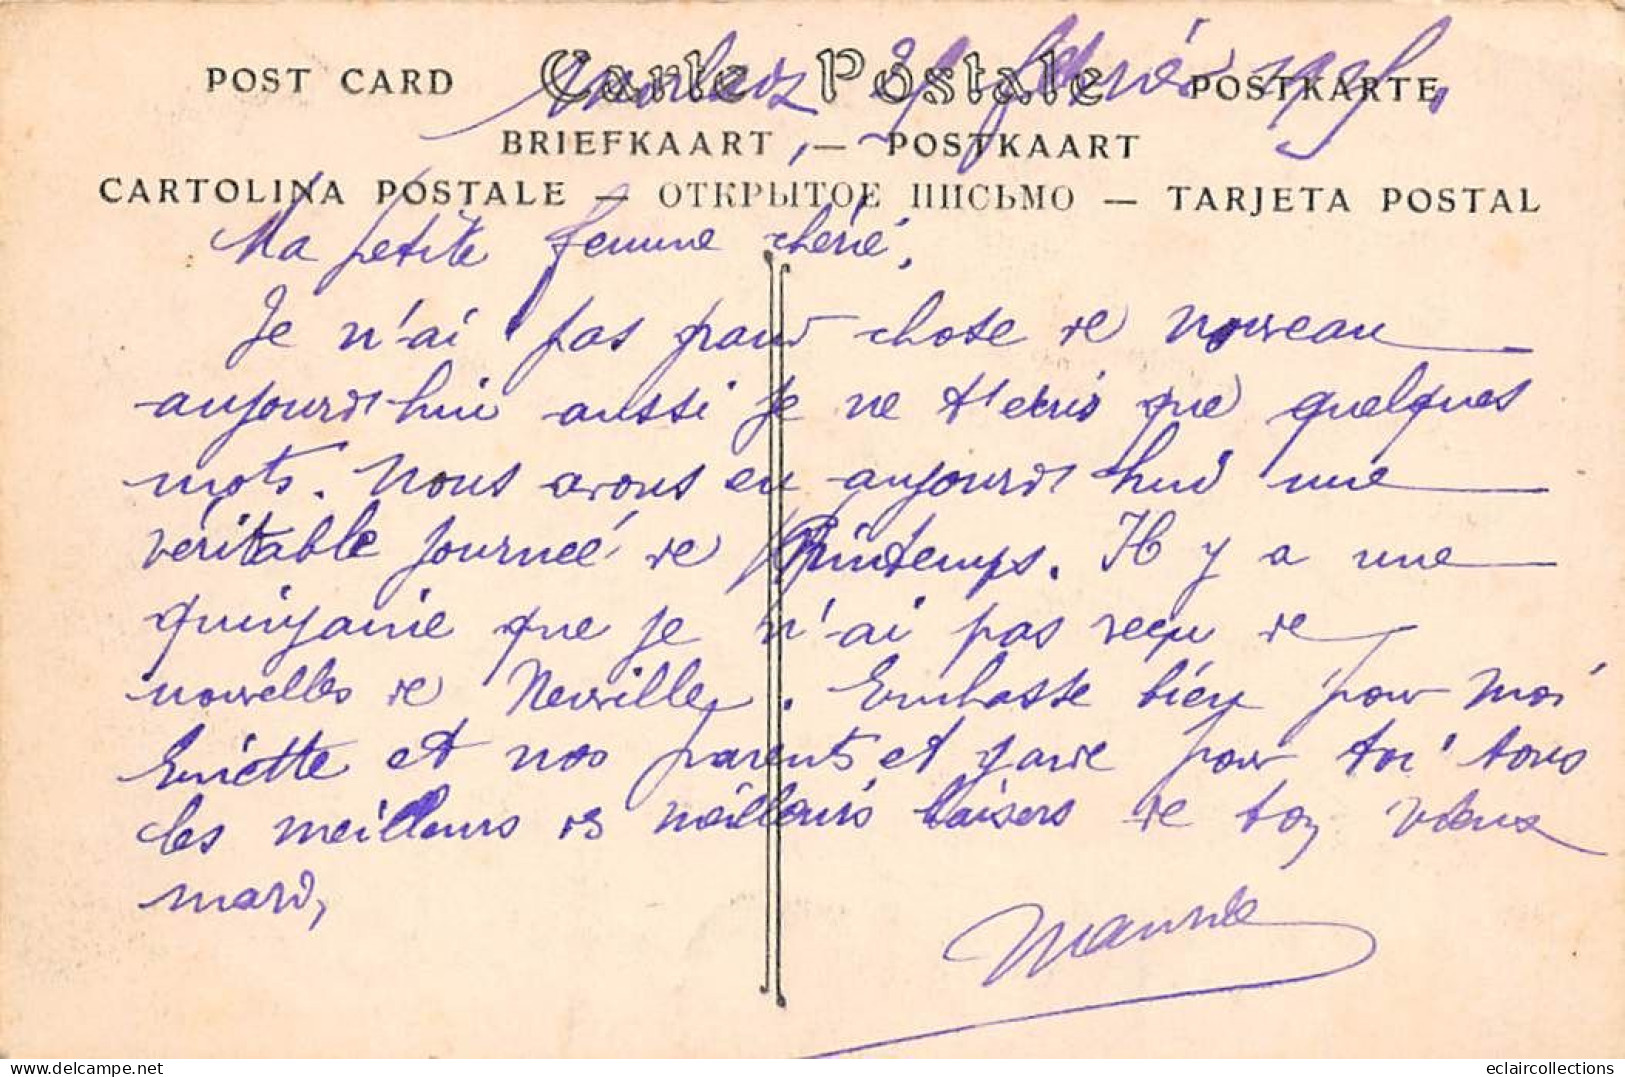 février
POST CARD Carte Postale POSTKARTE
BRIEFKAART — POSTKAART
CARTOLINA POSTALE — ОТКРЫТОЕ ПИСЬМО — TARJETA POSTAL
Ma petite femme chérie,
Je n'ai pas grand chose de nouveau
aujourd'hui aussi je ne t'écris que quelques
mots. Nous avons eu aujourd'hui une
véritable journée de Printemps. Il y a une
quinzaine que je n'ai pas reçu de
nouvelles de Neuville. Embrasse bien pour moi
et nos parents et garde pour toi tous
les meilleurs des meilleurs baisers de ton vieux
mari,
Maurice
eclaircollections